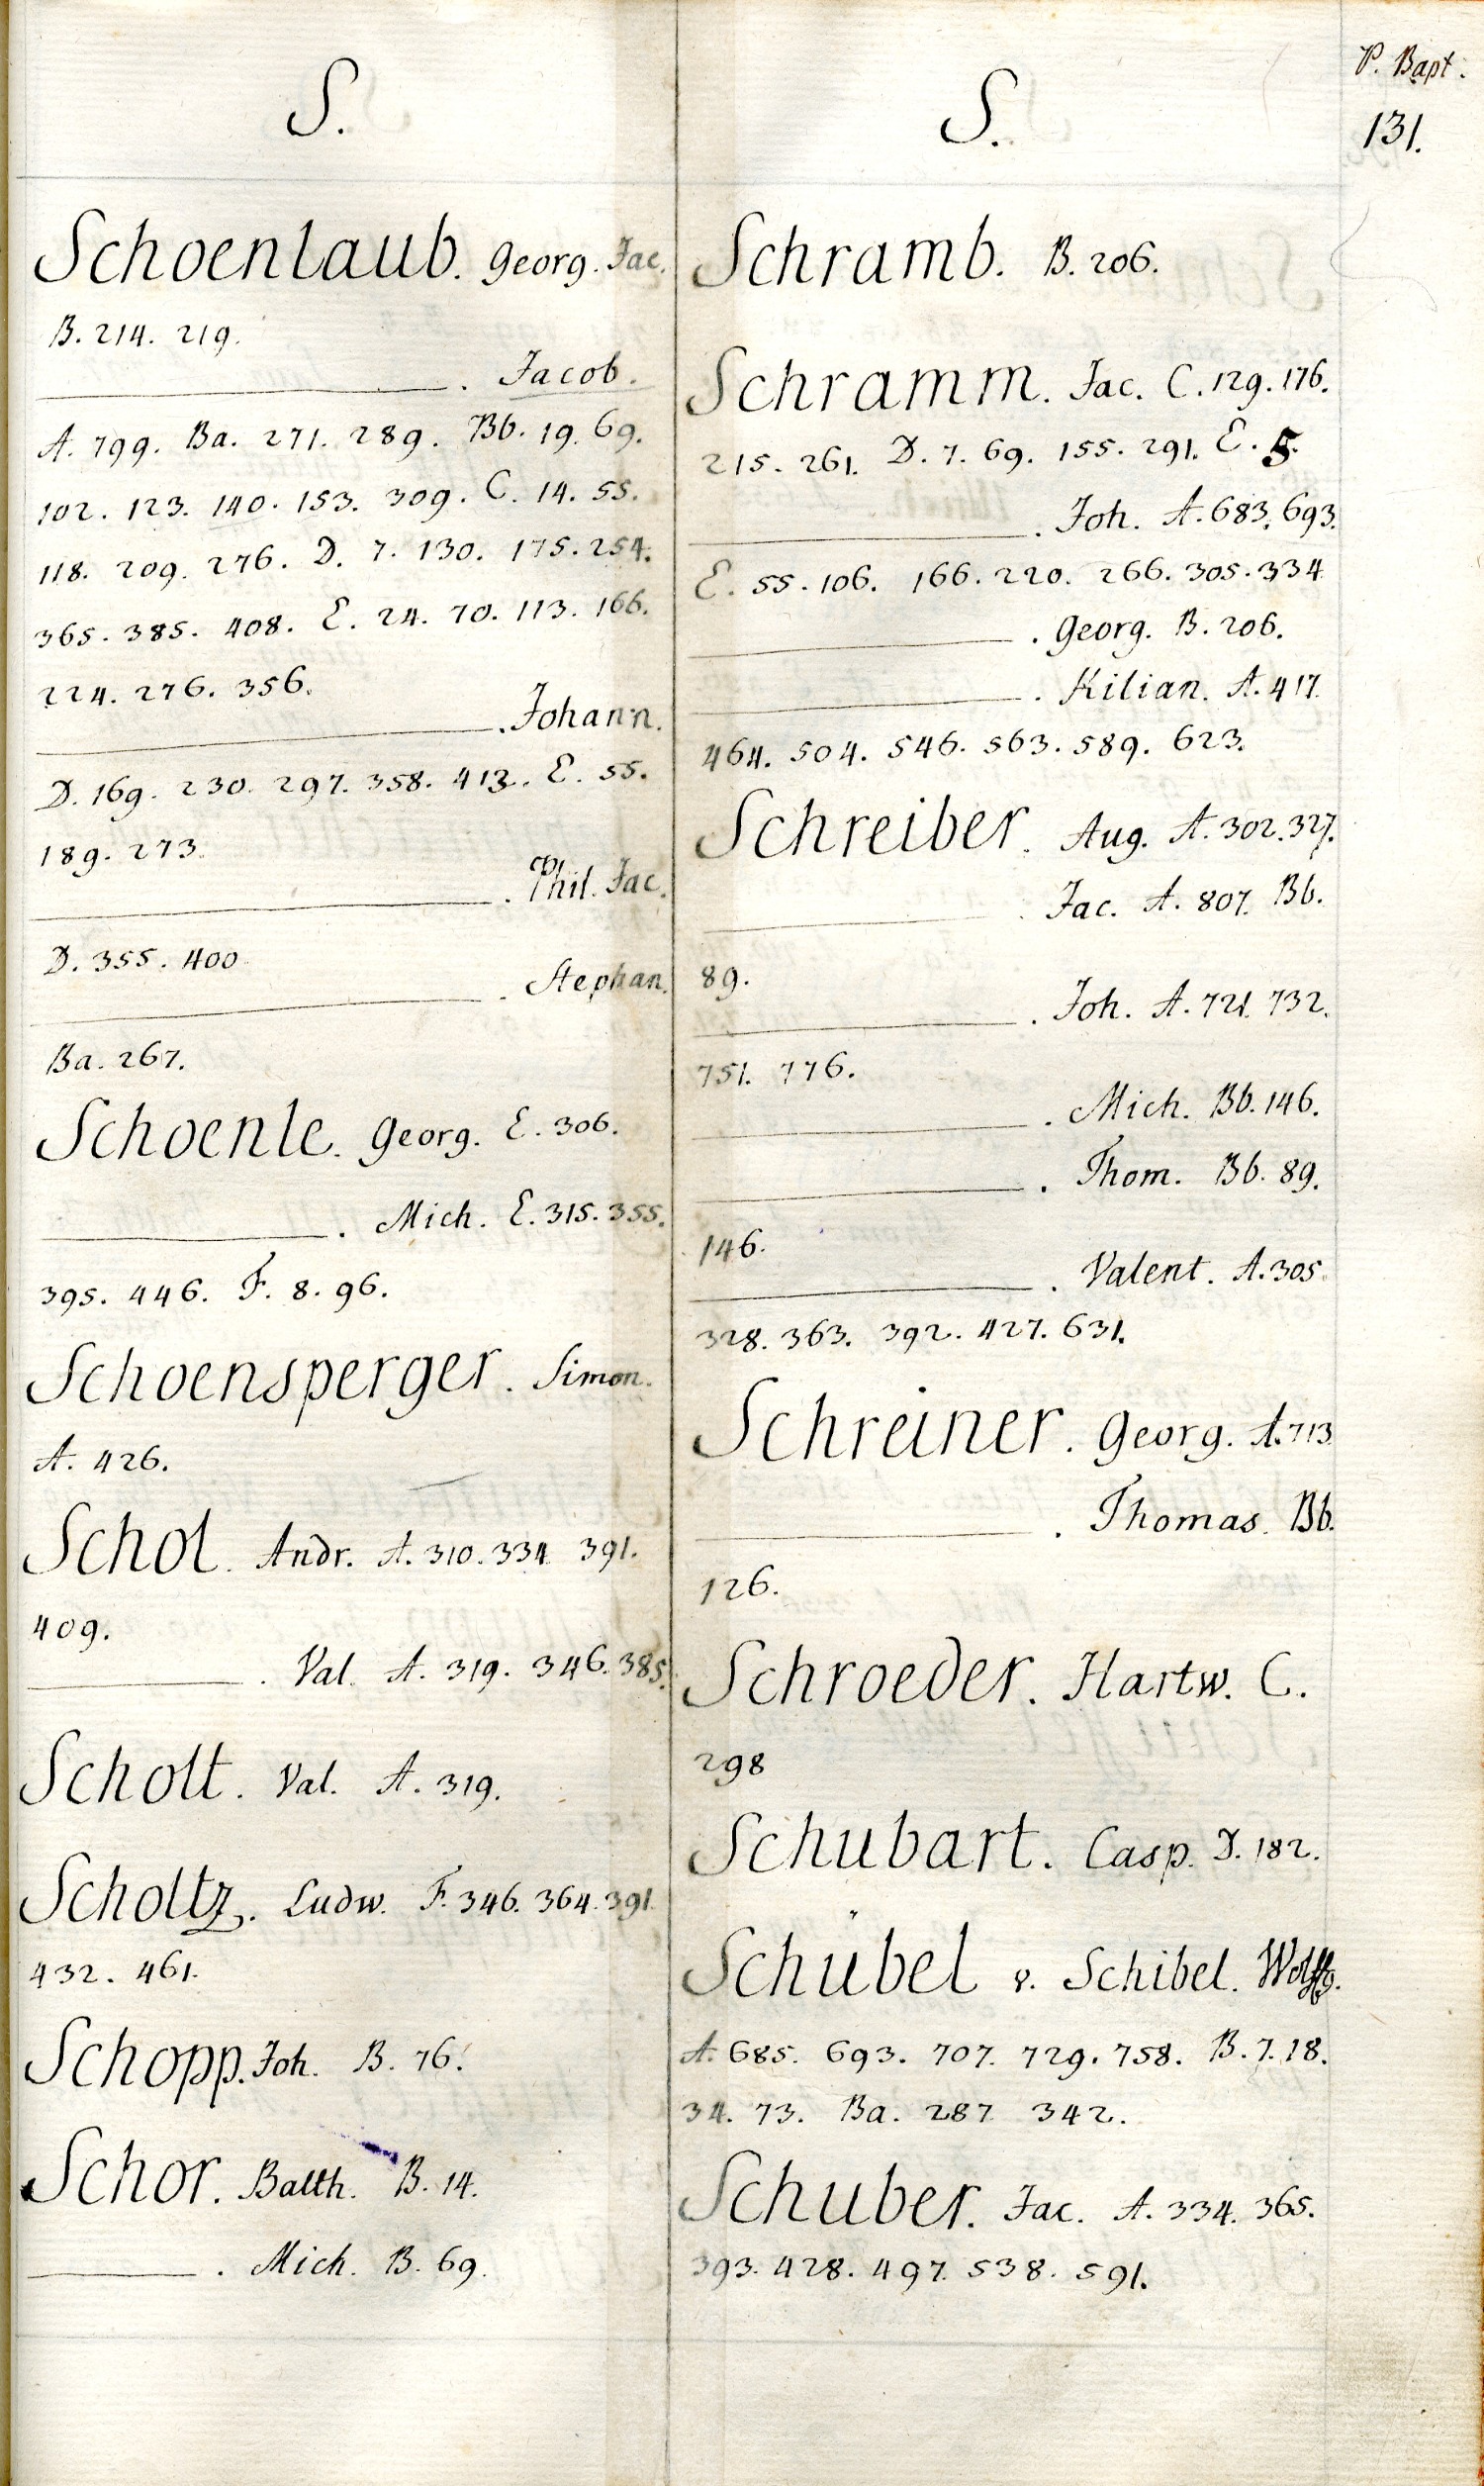 P. Bapt.
131.
S.
Schoenlaub. Georg. Jac.
B. 214. 219.
——. Jacob.
A. 799. Ba. 271. 289. Bb. 19. 69.
102. 123. 140. 153. 309. C. 14. 55.
118. 209. 276. D. 7. 130. 175. 254.
365. 385. 408. E. 24. 70. 113. 166.
224. 276. 356.
——. Johann.
D. 169. 230. 297. 358. 413. E. 55.
189. 273.
——. Phil. Jac.
D. 355. 400
——. Stephan.
Ba. 267.
Schoenle. Georg. E. 306.
——. Mich. E. 315. 355.
395. 446. F. 8. 96.
Schoensperger. Simon.
A. 426.
Schol. Andr. A. 310. 334. 391.
409.
——. Val. A. 319. 346. 385.
Scholt. Val. A. 319.
Scholtz. Ludw. F. 346. 364. 391.
432. 461.
Schopp. Joh. B. 76.
Schor. Balth. B. 14.
——. Mich. B. 69.
S.
Schramb. B. 206.
Schramm. Jac. C. 129. 176.
215. 261. D. 7. 69. 155. 291. E. 5.
——. Joh. A. 683. 693.
E. 55. 106. 166. 220. 266. 305. 334
——. Georg. B. 206.
——. Kilian. A. 417.
464. 504. 546. 563. 589. 623.
Schreiber. Aug. A. 302. 327.
——. Jac. A. 807. Bb.
89.
——. Joh. A. 721. 732.
751. 776.
——. Mich. Bb. 146.
——. Thom. Bb. 89.
146.
——. Valent. A. 305.
328. 363. 392. 427. 631.
Schreiner. Georg. A. 713
——. Thomas. Bb.
126.
Schroeder. Hartw. C.
298
Schubart. Casp. D. 182.
Schübel v. Schibel. Wolffg.
A. 685. 693. 707. 729. 758. B. 7. 18.
34. 73. Ba. 287. 342.
Schuber. Jac. A. 334. 365.
393. 428. 497. 538. 591.